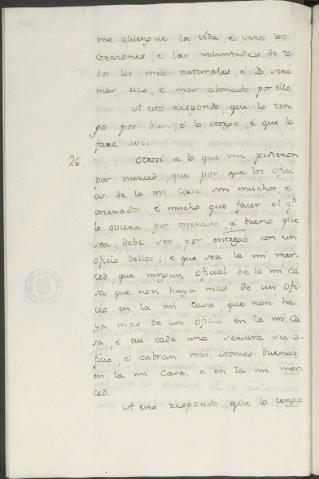 me guisar de la vida, é vere los
corazones, é las voluntades de to-
dos los mis naturales, é Yo seré
mas rico, é mas abonado por ello.
A esto respondo, que lo ten-
go por bien, é lo otorgo, é que lo
faré asi.
26. Otrosi á lo que me pidieron
por merced, que por que los ofici-
os de la mi Casa son muchos, é
onrrados, é mucho que facer el q.e
lo oviere por onrrado é bueno que
sea, debe ser por entrego con un
oficio dellos; é que sea la mi mer-
ced que ningun oficial de la mi Ca-
sa que non haya mas de un ofi-
cio en la mi Casa que non ha-
ya mas de un oficio en la mi Ca-
sa, é asi cada uno servira su o-
ficio, é cabran mas omes buenos
en la mi Casa, é en la mi mer-
ced.
A esto respondo, que lo tengo